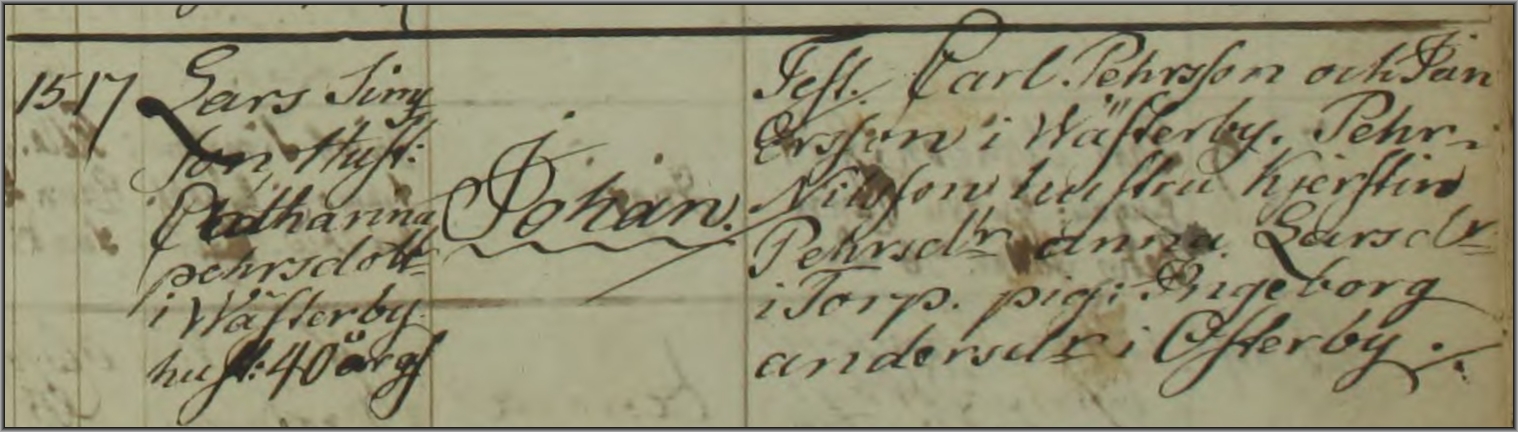 15 17 Lars Sim̃
son, Hust:
Catharina
pehrsdott
i Wästerby.
hust: 40 årg
Johan.
Test. Carl Pehrsson och Jan
Ersson i Wästerby. Pehr
Nilsson hustru Kjerstin
Pehrsdr anna Larsdr
i Torp. pig: Ingeborg
andersdr i Österby.